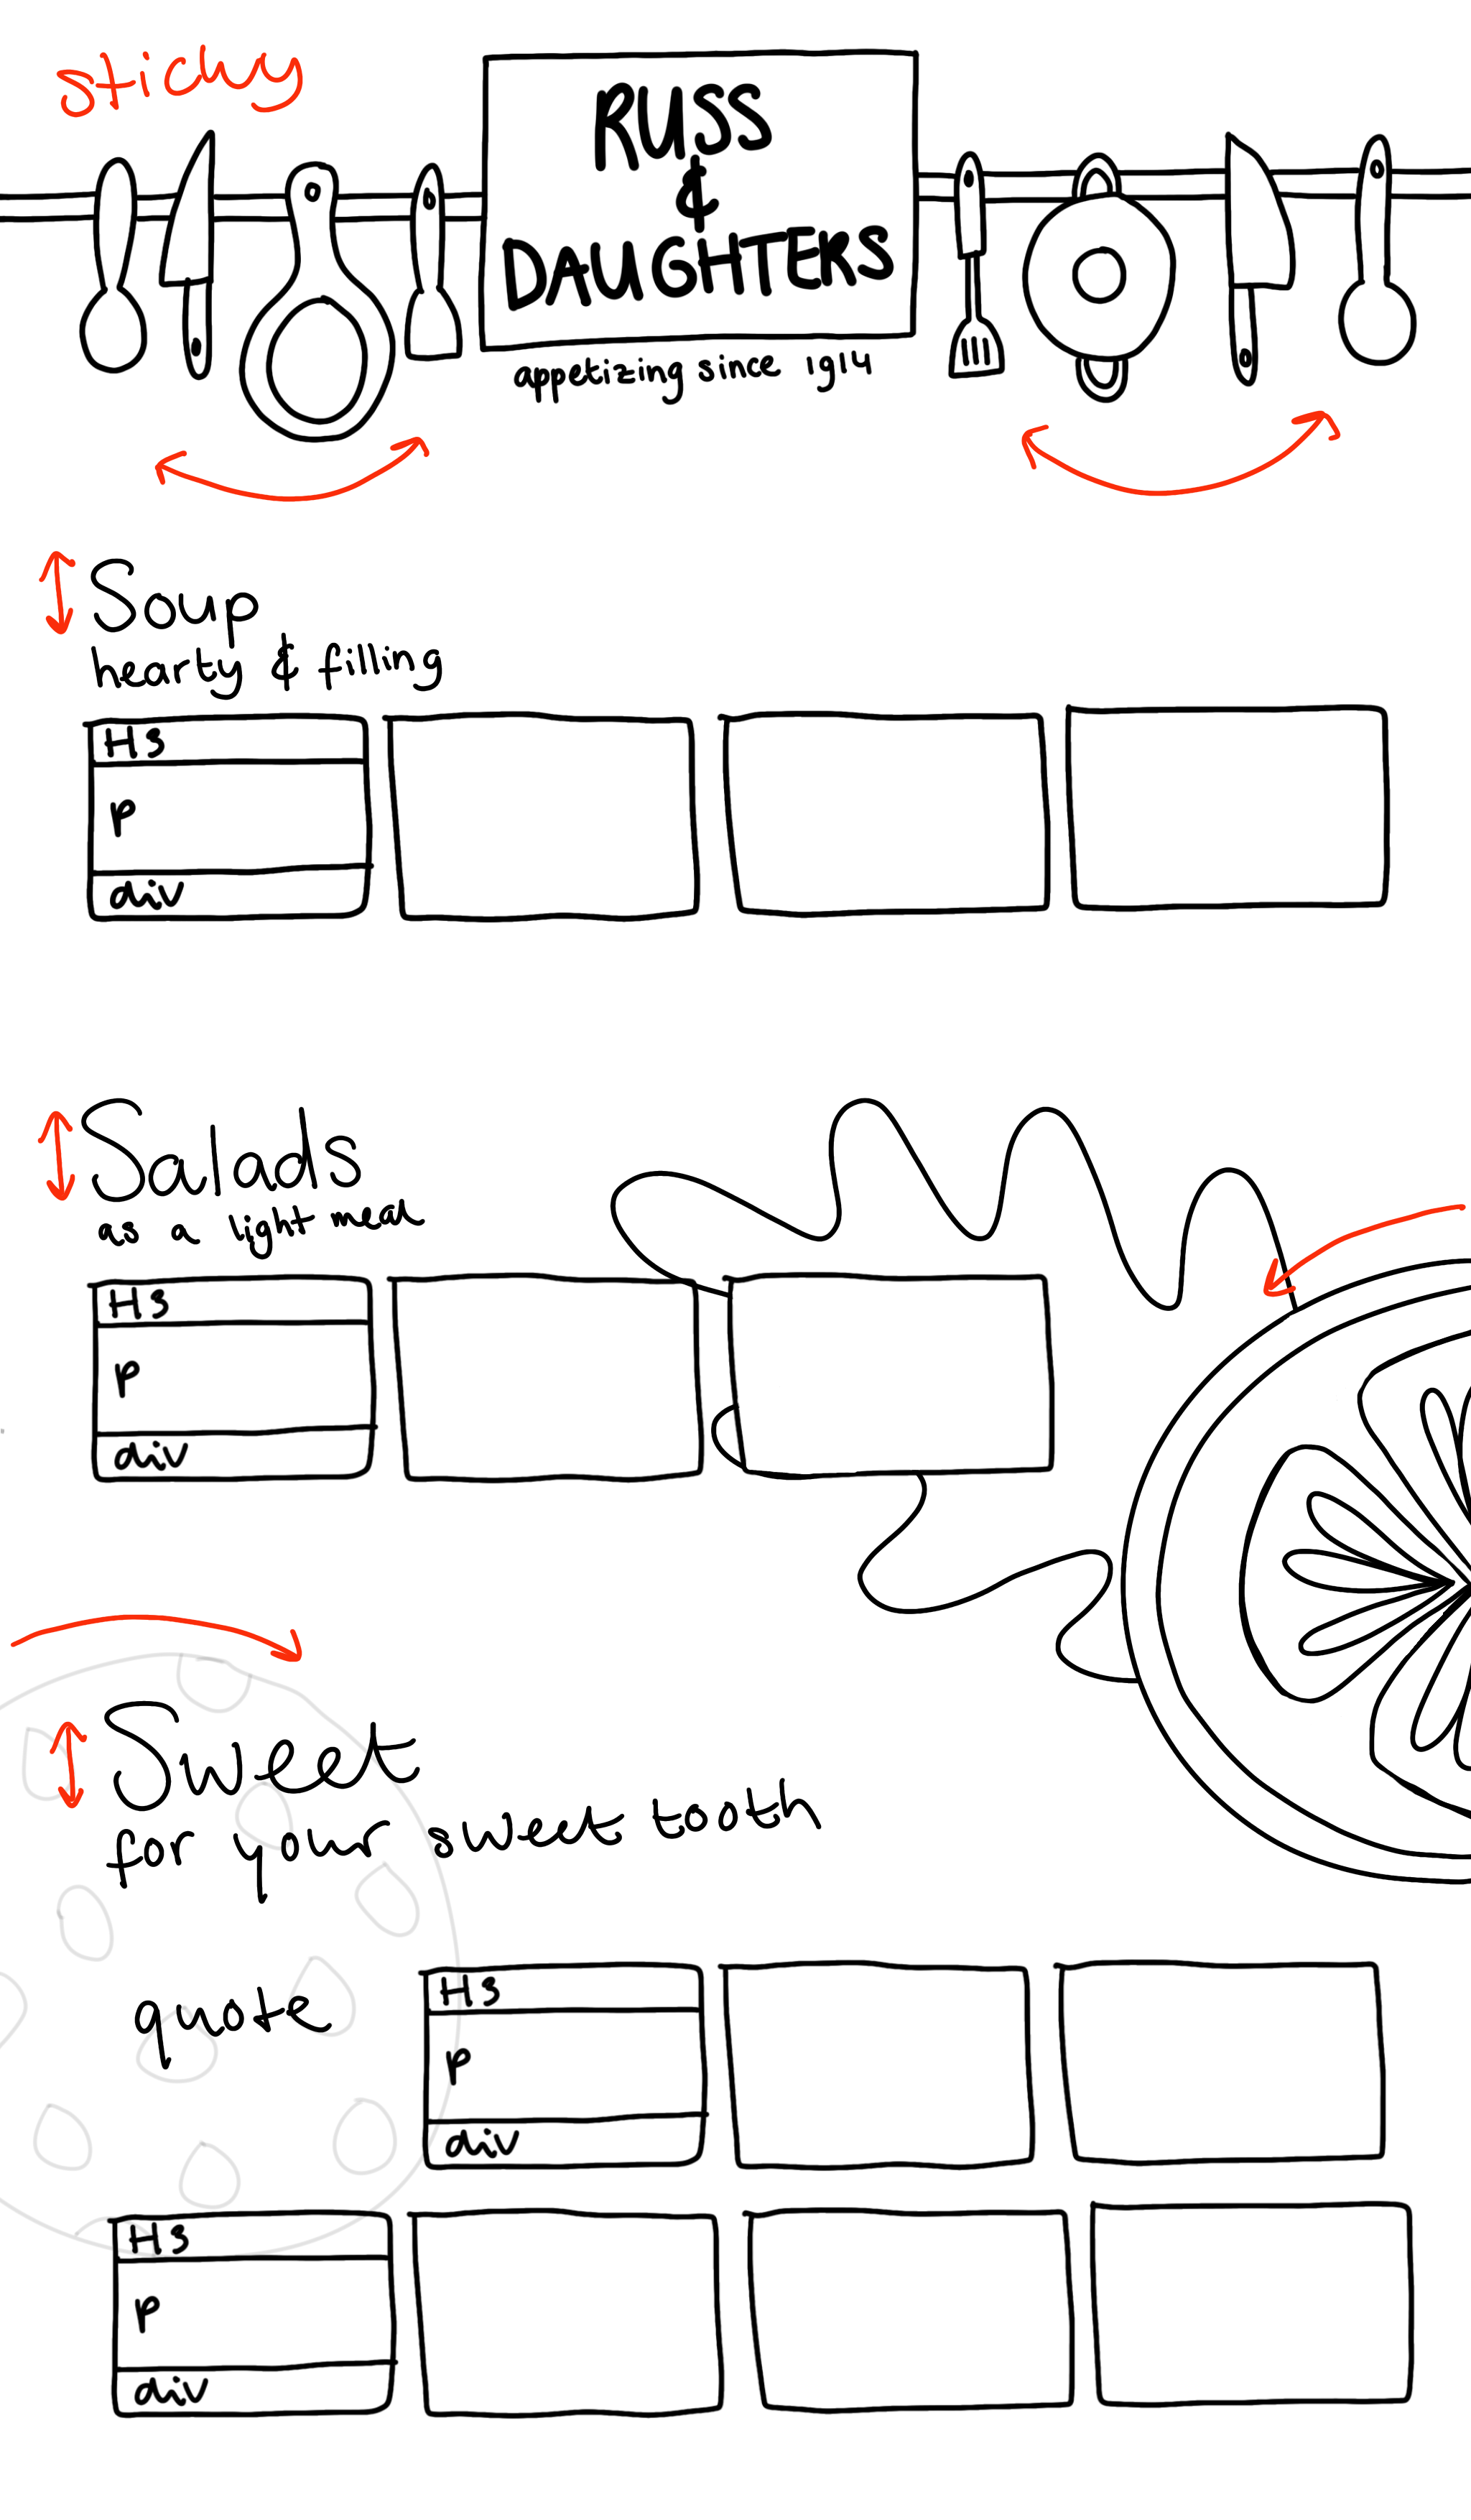 sticky
RUSS
&
DAUGHTERS
appetizing since 1914
Soup
hearty & filling
H3
p
div
Salads
as a light meal
H3
p
div
Sweet
for your sweet tooth
quote
H3
p
div
H3
p
div